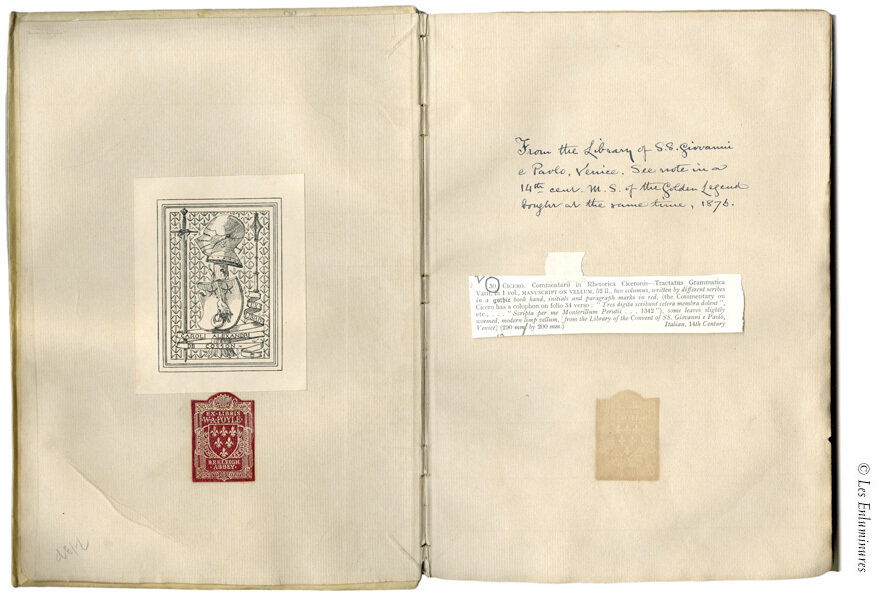 CAROLI ALEXANDRI
DE COSSON
EX-LIBRIS
W.A.FOYLE
BEELEIGH
ABBEY
From the Library of S.S. Giovanni
e Paolo, Venice. See note in a
14th cent. M.S. of the Golden Legend
bought at the same time, 1876.
30 CICERO. Commentarii in Rhetorica Ciceronis—Tractatus Grammatica
Varii, in 1 vol., MANUSCRIPT ON VELLUM, 52 ll., two columns, written by different scribes
in a gothic book hand, initials and paragraph marks in red, (the Commentary on
Cicero has a colophon on folio 34 verso: "Tres digita scribunt cetera membra dolent",
etc., . . . "Scripta per me Monterillum Perutii . . . 1342"), some leaves slightly
wormed, modern limp vellum, [from the Library of the Convent of SS. Giovanni e Paolo,
Venice] (290 mm by 200 mm.) Italian, 14th Century
© Les Enluminures